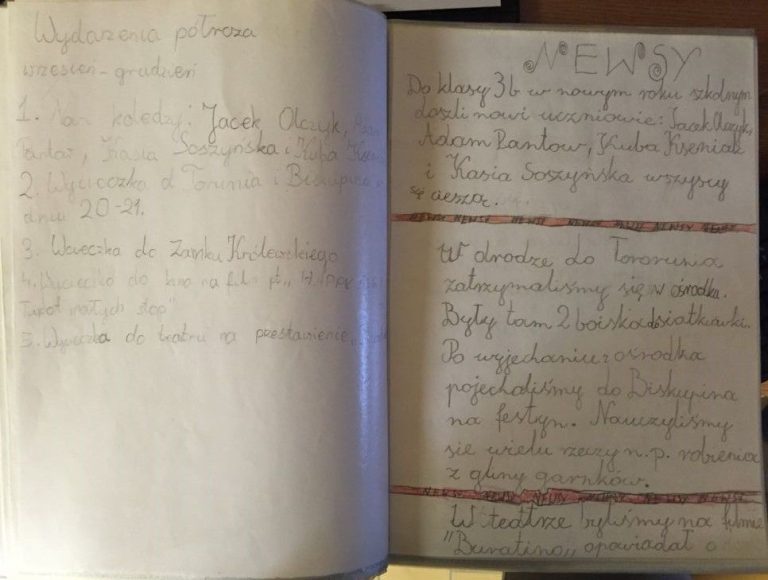 Wydażenia półroza
wrzesień-grudzień
1. koledzy: Jacek Olczyk,
Kasia Soszyńska i Kuba
2. Wycieczka d Torunia i Biskupina
dniu 20-21.
3. Wycieczka do Zamku Królewskiego
4. Wycieczka do kina na film pt.,,
Tupot małych stop"
5. Wycieczka do teatru na przestawienie
NEWSY
Do klasy 3b w nowym roku szkolnym
doszli nowi uczniowie: Jacek Olczyk,
Adam Pantow, Kuba Kseniak
i Kasia Soszyńska wszyscy
się cieszą.
NEWSY NEWSY NEWSY NEWSY NEWSY NEWSY
W drodze do Torunia
zatrzymaliśmy się w ośrodku.
Były tam 2 boiska do siatkówki.
Po wyjechaniu z ośrodka
pojechaliśmy do Biskupina
na festyn. Nauczyliśmy
się wielu rzeczy n.p. robienia
z gliny garnków.
NEWSY NEWSY NEWSY NEWSY NEWSY NEWSY
W teatrze byliśmy na filmie
"Buratino,, opowiadał o